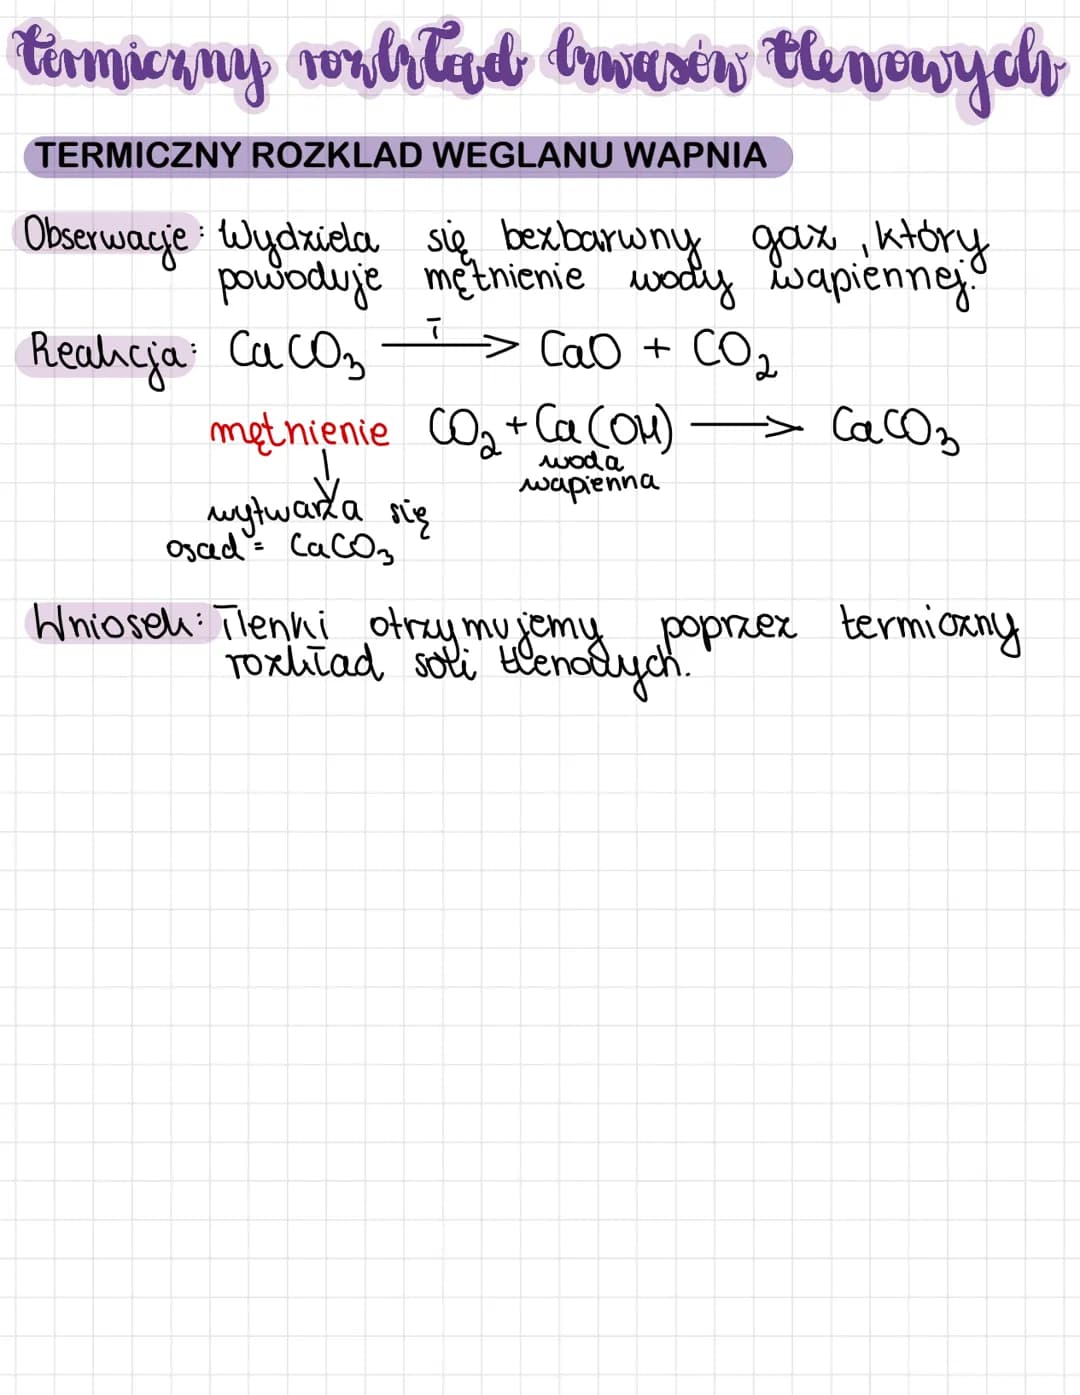 termiczny rozkład kwasów tlenowych
TERMICZNY ROZKLAD WEGLANU WAPNIA
Obserwacje: Wydziela się bezbarwny gaz, który
powoduje mętnienie wody wapiennej.
Reakcja: CaCO₃ —T→ CaO + CO₂
mętnienie CO₂ + Ca(OH) → CaCO₃
woda
wapienna
wytwarza się
osad = CaCO₃
Wniosek: Tlenki otrzymujemy poprzez termiczny
rozkład soli tlenowych.